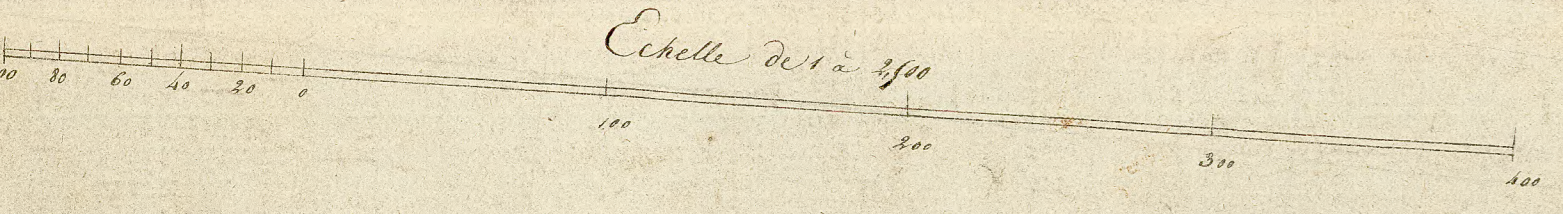 Echelle de 1 à 2,500
00 80 60 40 20 0 100 200 300 400